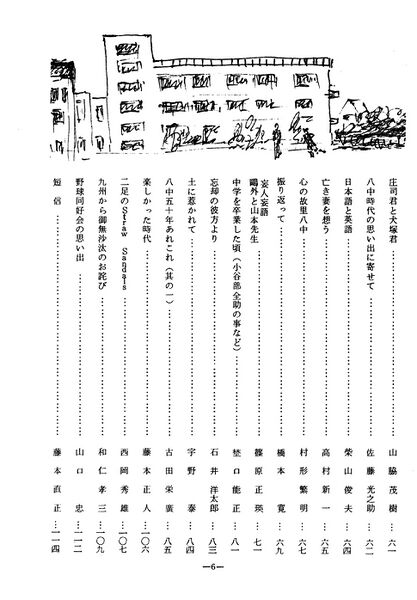 庄司君と犬塚君……………………山脇茂樹…六一
八中時代の思い出に寄せて……………………佐藤光之助…六二
日本語と英語……………………柴山俊夫…六四
亡き妻を想う……………………高村新一…六五
心の故里八中……………………村形繁明…六七
振り返って……………………橋本寛…六九
妄人妄語
鷗外と山本先生……………………篠原正瑛…七一
中学を卒業した頃(小谷部全助の事など)……………………埜口能正…八一
忘却の彼方より……………………石井洋太郎…八三
土に惹かれて……………………宇野泰…八四
八中五十年あれこれ(其の一)……………………古田栄廣…八五
楽しかった時代……………………藤本正人…一〇六
二足のStraw Sandals……………………西岡秀雄…一〇七
九州から御無沙汰のお詫び……………………和仁孝三…一〇九
野球同好会の思い出……………………山口忠…一一二
短信……………………藤本直正…一一四
—6—